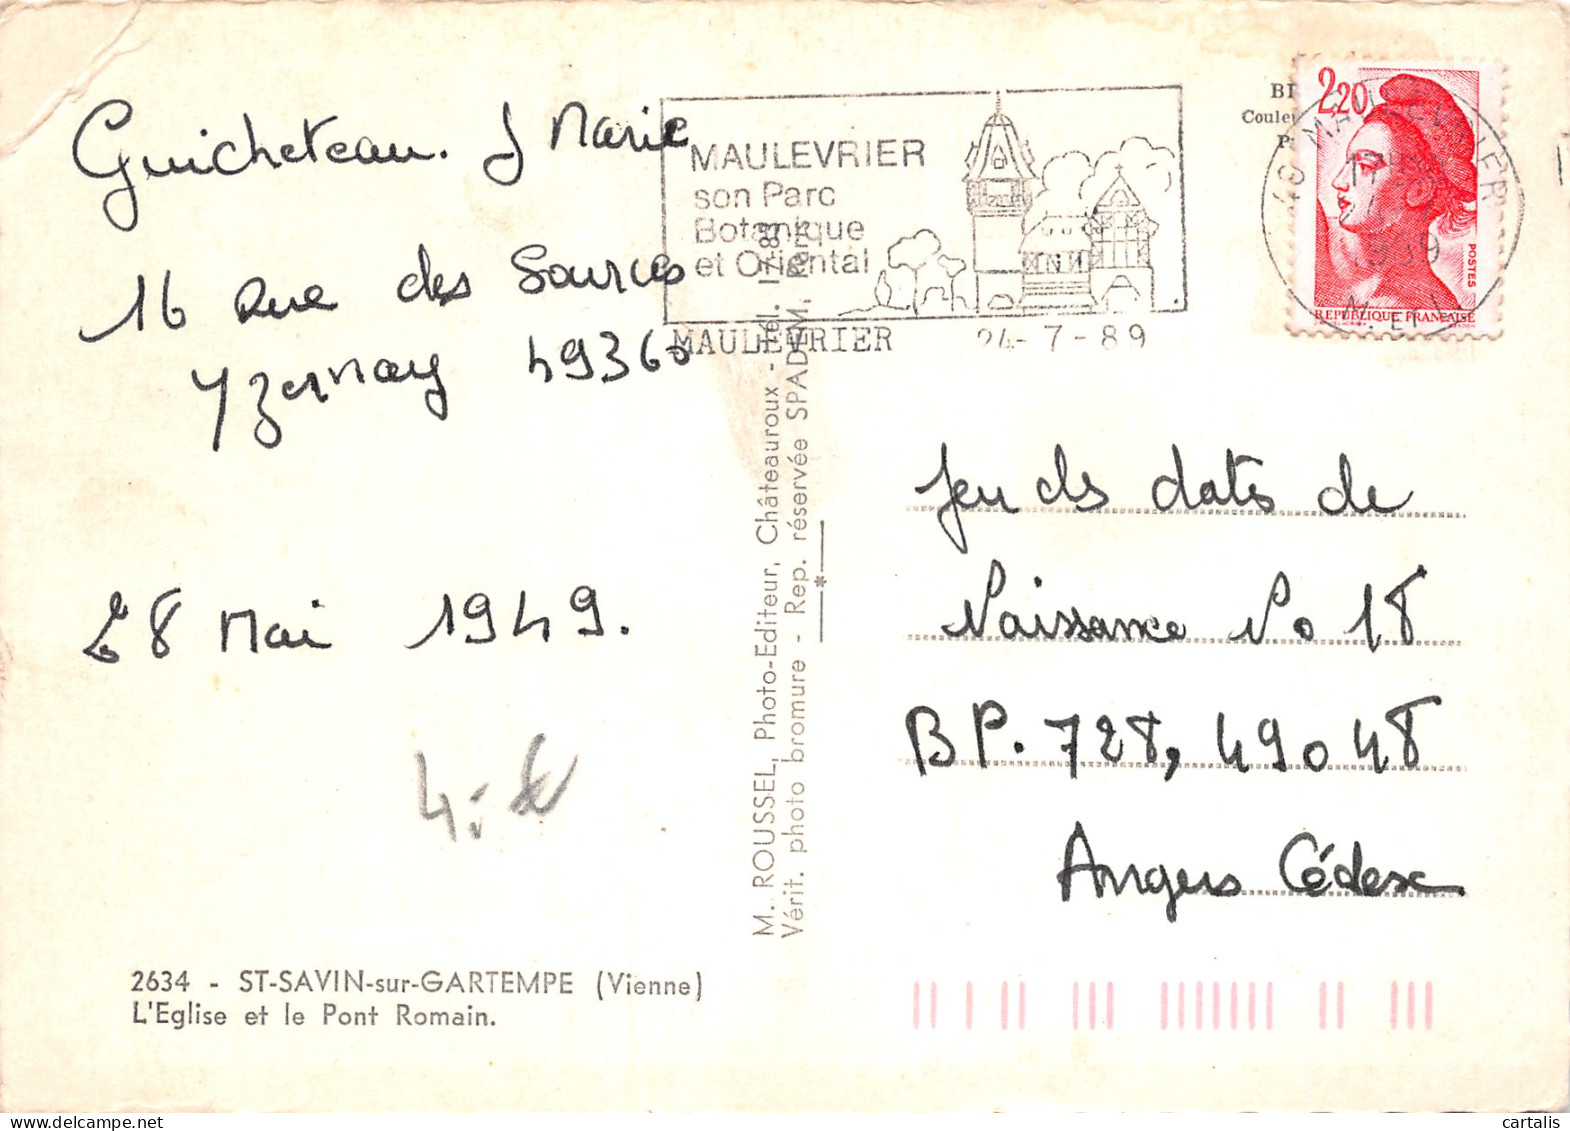 Guicheteau. J Marie
16 Rue des Sources
Yzernay 49360
28 Mai 1949.
4.-
2634 - ST-SAVIN-sur-GARTEMPE (Vienne)
L'Eglise et le Pont Romain.
M. ROUSSEL, Photo-Editeur, Châteauroux - Tél.
Vérit. photo bromure - Rep. réservée SPADEM.
MAULEVRIER
son Parc
Botanique
et Oriental
MAULEVRIER 24-7-89
2,20
POSTES
REPUBLIQUE FRANÇAISE
49 MAULEVRIER
M. ET L.
Jeu ds dates de
Naissance No 18
BP. 728, 49048
Angers Cédex
cartalis